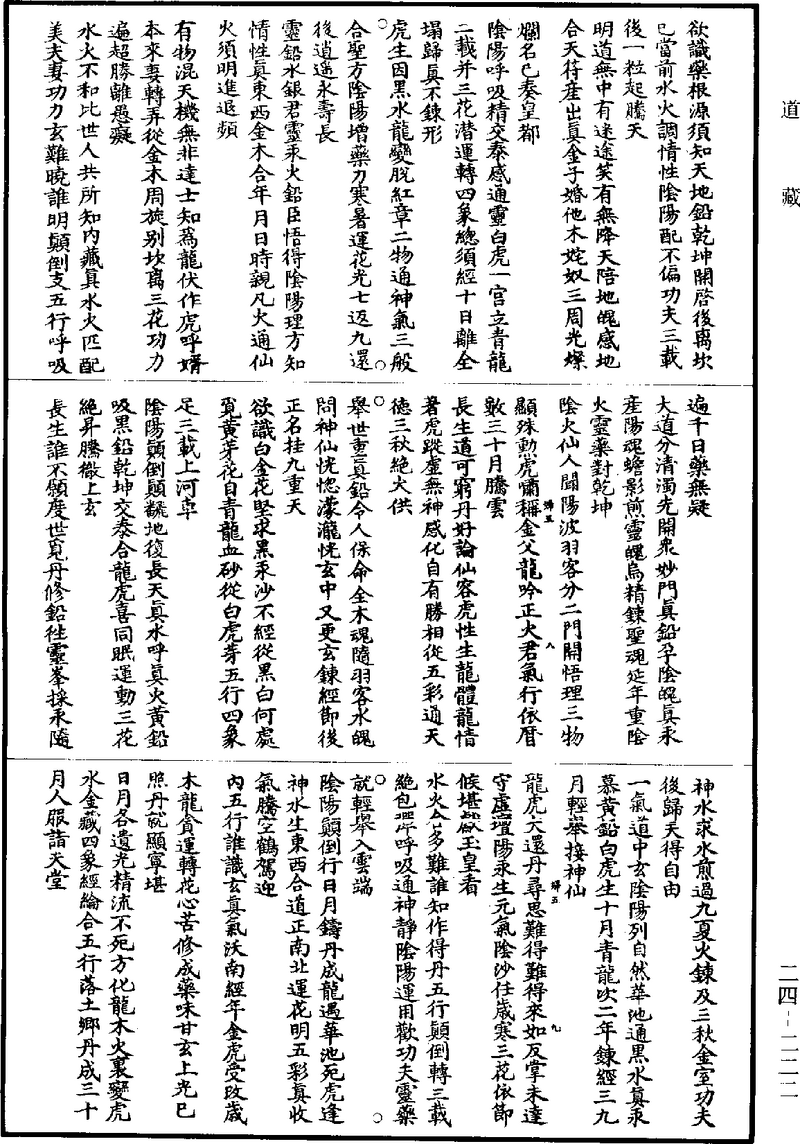 道藏
欲識藥根源須知天地鉛乾坤開啓後离坎
已當前水火調情性陰陽配不偏功夫三載
後一粒起騰天
明道無中有迷途笑有無降天陪地魄感地
合天符産出真金子婚他木姹奴三周光燦
爛名已奏皇都
陰陽呼吸精交泰感通靈白虎一宮立青龍
二載并三花潜運轉四象總須經十日離全
塌歸真不鍊形
虎生因黑水龍變脫紅章二物通神氣三般
合聖方陰陽增藥力寒暑運花光七返九還
後逍遥永壽長
靈鉛水銀君靈汞火鉛臣悟得陰陽理方知
情性真東西金木合年月日時親凡火通仙
火須明進退頻
有物混天機無非達士知爲龍伏作虎呼婿
本來妻轉弄從金木周旋别坎离三花功力
遍超勝離愚癡
水火不和比世人共所知内藏真水火匹配
美夫妻功力玄難曉誰明顛倒支五行呼吸
遍千日藥無疑
大道分清濁先開衆妙門真鉛孕陰魄真汞
産陽魂蟾影煎靈魄烏精鍊聖魂延年重陰
火靈藥對乾坤
陰火仙人聞陽波羽客分二門開悟理三物
顯殊勳虎嘯稱金父龍吟正火君氣行依曆
數三十月騰雲
長生道可窮丹好論仙容虎性生龍體龍情
著虎蹤虚無神感化自有勝相從五彩通天
徳三秋絶火供
舉世重真鉛令人保命全木魂隨羽客水魄
問神仙恍惚濛瀧恍玄中又更玄鍊經節後
正名挂九重天
欲識白金花堅求黑汞沙不經從黑白何處
覓黄芽花自青龍血砂從白虎芽五行四象
足三載上河車
陰陽顛倒顛䵝地復長天真水呼真火黄鉛
吸黑鉛乾坤交泰合龍虎喜同眠運動三花
絶昇騰徹上玄
長生誰不願度世覓丹修鉛徃靈峯採汞隨
神水求水煎過九夏火鍊及三秋金室功夫
後歸天得自由
一氣道中玄陰陽列自然華池通黑水真汞
慕黄鉛白虎生十月青龍吹二年鍊經三九
月輕舉接神仙
龍虎大還丹尋思難得難得來如反掌未達
守虚壇陽汞生元氣陰沙任歲寒三花依節
候堪獻玉皇看
水火合多難誰知作得丹五行顛倒轉三載
絶包𤬪呼吸通神靜陰陽運用歡功夫靈藥
就輕舉入雲端
陰陽顛倒行日月鑄丹成龍遇華池死虎逢
神水生東西合道正南北運花明五彩真收
氣騰空鶴駕迎
内五行誰識玄真氣沃南經年金虎受攻歲
木龍貪運轉花心苦修成藥味甘玄上光已
照丹就顯寧堪
日月各遺光精流不死方化龍木火裏變虎
水金藏四象經綸合五行落土鄉丹成三十
月人服詣天堂
二四-二二二